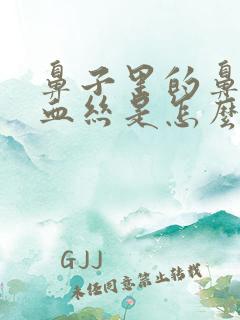 鼻子里的鼻
血丝是怎麼
GJJ
未经同意禁止转载